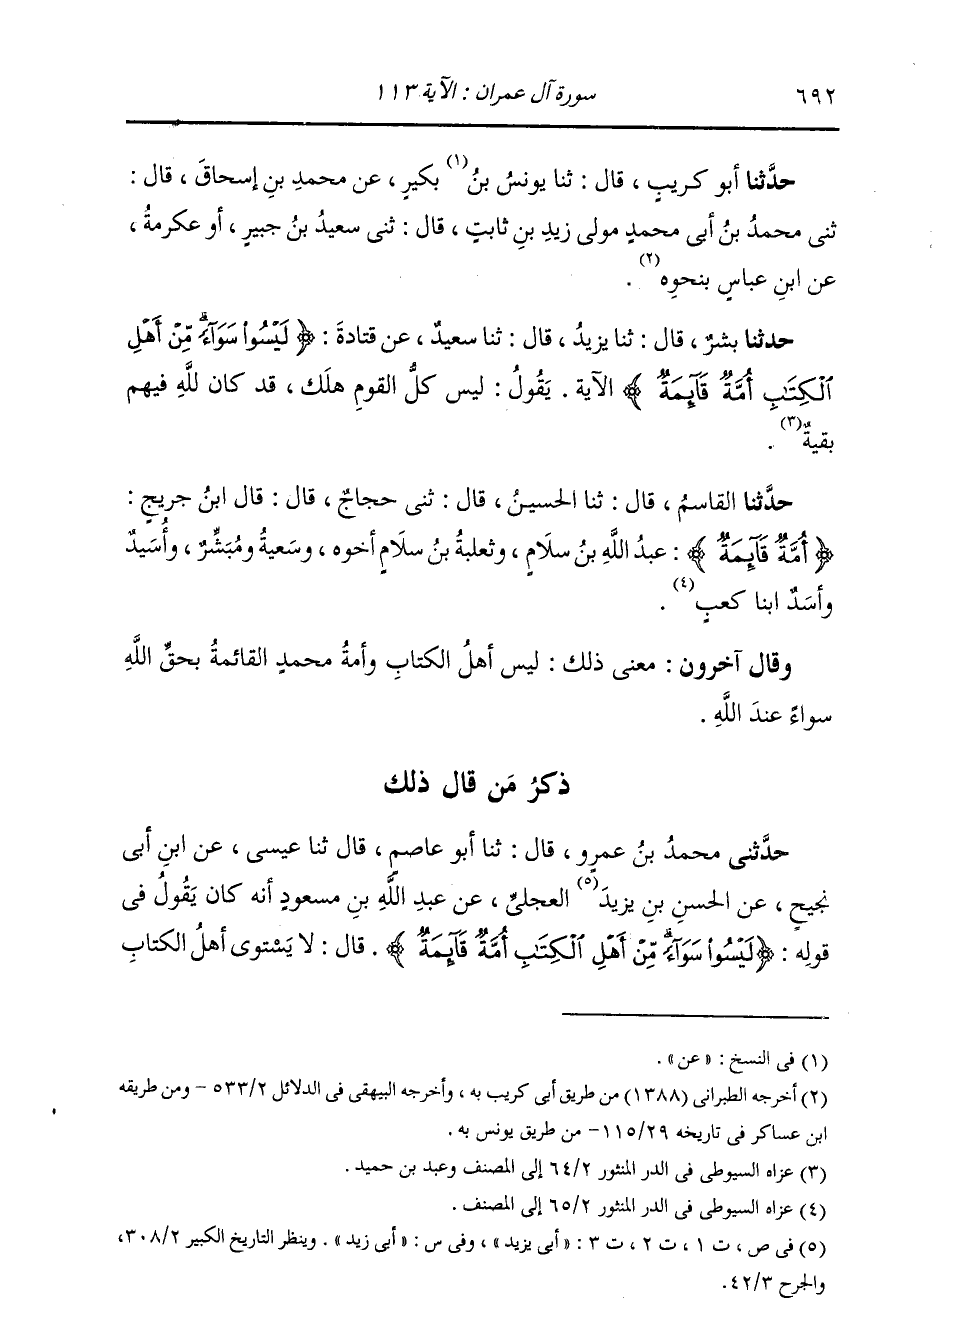 ٦٩٢ سورة آل عمران : الآية ١١٣
حدَّثنا أبو كريبٍ ، قال : ثنا يونسُ بنُ(١) بكيرٍ ، عن محمدِ بنِ إسحاقَ ، قال :
ثنى محمدُ بنُ أبى محمدٍ مولى زيدِ بنِ ثابتٍ ، قال : ثنى سعيدُ بنُ جبيرٍ ، أو عكرمةُ ،
عن ابنِ عباسٍ بنحوِه(٢) .
حدثنا بشرٌ ، قال : ثنا يزيدُ ، قال : ثنا سعيدٌ ، عن قتادةَ : ﴿ لَيْسُوا۟ سَوَآءً ۗ مِّنْ أَهْلِ
ٱلْكِتَـٰبِ أُمَّةٌ قَآئِمَةٌ ﴾ الآية . يَقُولُ : ليس كلُّ القومِ هلَك ، قد كان للَّهِ فيهم
بقيةٌ(٣) .
حدَّثنا القاسمُ ، قال : ثنا الحسينُ ، قال : ثنى حجاجٌ ، قال : قال ابنُ جريجٍ :
﴿ أُمَّةٌ قَآئِمَةٌ ﴾ : عبدُ اللَّهِ بنُ سلَامٍ ، وثعلبةُ بنُ سلَامٍ أخوه ، وسَعيةُ ومُبَشِّرٌ ، وأُسَيدٌ
وأسَدٌ ابنا كعبٍ(٤) .
وقال آخرون : معنى ذلك : ليس أهلُ الكتابِ وأمةُ محمدٍ القائمةُ بحقِّ اللَّهِ
سواءً عندَ اللَّهِ .
ذكرُ مَن قال ذلك
حدَّثنى محمدُ بنُ عمرٍو ، قال : ثنا أبو عاصمٍ ، قال ثنا عيسى ، عن ابنِ أبى
نجيحٍ ، عن الحسنِ بنِ يزيدَ(٥) العجلىِّ ، عن عبدِ اللَّهِ بنِ مسعودٍ أنه كان يَقُولُ فى
قولِه : ﴿ لَيْسُوا۟ سَوَآءً ۗ مِّنْ أَهْلِ ٱلْكِتَـٰبِ أُمَّةٌ قَآئِمَةٌ ﴾ . قال : لا يَسْتوى أهلُ الكتابِ
(١) فى النسخ : «عن» .
(٢) أخرجه الطبرانى (١٣٨٨) من طريق أبى كريب به ، وأخرجه البيهقى فى الدلائل ٥٣٣/٢ – ومن طريقه
ابن عساكر فى تاريخه ١١٥/٢٩ – من طريق يونس به .
(٣) عزاه السيوطى فى الدر المنثور ٦٤/٢ إلى المصنف وعبد بن حميد .
(٤) عزاه السيوطى فى الدر المنثور ٦٥/٢ إلى المصنف .
(٥) فى ص ، ت ١ ، ت ٢ ، ت ٣ : «أبى يزيد» ، وفى س : «أبى زيد» . وينظر التاريخ الكبير ٣٠٨/٢ ،
والجرح ٤٢/٣ .